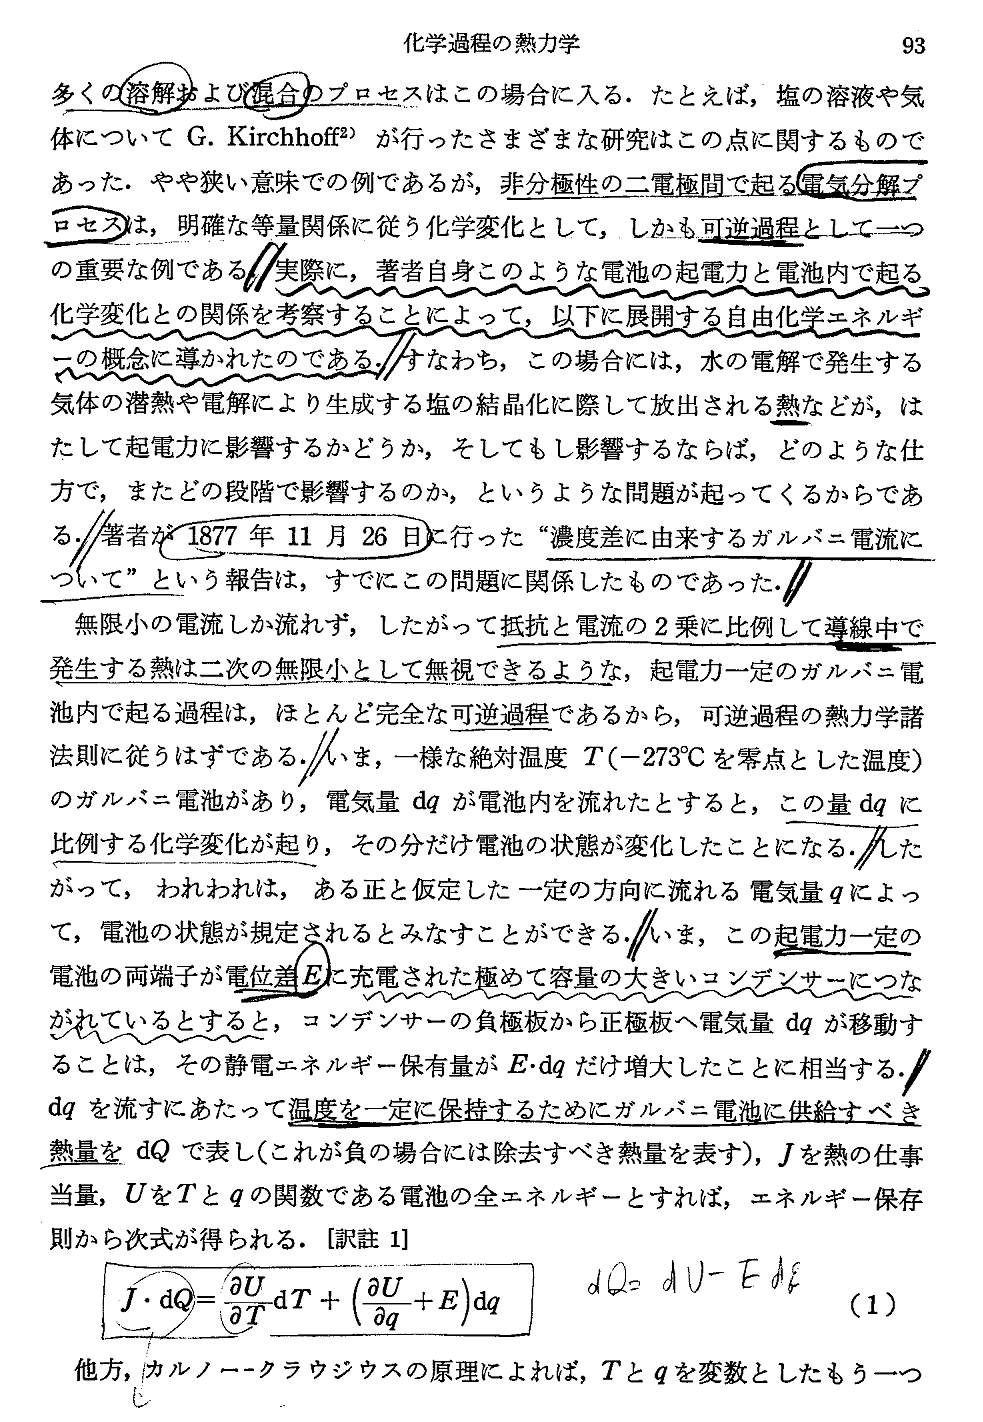 化学過程の熱力学
93
多くの溶解および混合のプロセスはこの場合に入る．たとえば，塩の溶液や気
体について G. Kirchhoff²⁾ が行ったさまざまな研究はこの点に関するもので
あった．やや狭い意味での例であるが，非分極性の二電極間で起る電気分解プ
ロセスは，明確な等量関係に従う化学変化として，しかも可逆過程として一つ
の重要な例である．実際に，著者自身このような電池の起電力と電池内で起る
化学変化との関係を考察することによって，以下に展開する自由化学エネルギ
ーの概念に導かれたのである．すなわち，この場合には，水の電解で発生する
気体の潜熱や電解により生成する塩の結晶化に際して放出される熱などが，は
たして起電力に影響するかどうか，そしてもし影響するならば，どのような仕
方で，またどの段階で影響するのか，というような問題が起ってくるからであ
る．著者が 1877 年 11 月 26 日に行った “濃度差に由来するガルバニ電流に
ついて” という報告は，すでにこの問題に関係したものであった．
無限小の電流しか流れず，したがって抵抗と電流の2乗に比例して導線中で
発生する熱は二次の無限小として無視できるような，起電力一定のガルバニ電
池内で起る過程は，ほとんど完全な可逆過程であるから，可逆過程の熱力学諸
法則に従うはずである．いま，一様な絶対温度 T(−273℃を零点とした温度)
のガルバニ電池があり，電気量 dq が電池内を流れたとすると，この量 dq に
比例する化学変化が起り，その分だけ電池の状態が変化したことになる．した
がって，われわれは，ある正と仮定した一定の方向に流れる電気量 q によっ
て，電池の状態が規定されるとみなすことができる．いま，この起電力一定の
電池の両端子が電位差 E に充電された極めて容量の大きいコンデンサーにつな
がれているとすると，コンデンサーの負極板から正極板へ電気量 dq が移動す
ることは，その静電エネルギー保有量が E·dq だけ増大したことに相当する．
dq を流すにあたって温度を一定に保持するためにガルバニ電池に供給すべき
熱量を dQ で表し(これが負の場合には除去すべき熱量を表す)，J を熱の仕事
当量，U を T と q の関数である電池の全エネルギーとすれば，エネルギー保存
則から次式が得られる．[訳註 1]
J·dQ = ∂U/∂T dT + (∂U/∂q + E)dq (1)
dQ= dU− E dq
他方，カルノー-クラウジウスの原理によれば，T と q を変数としたもう一つ